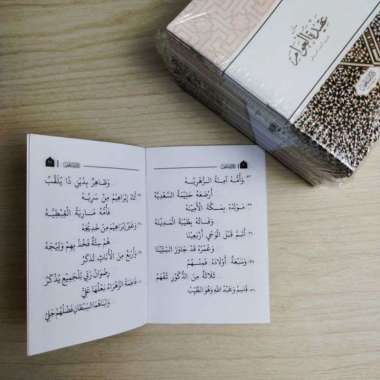 عقيدة العوام
وَأُمُّهُ آمِنَةُ الزُّهْرِيَّهْ
أَرْضَعَهُ حَلِيمَةُ السَّعْدِيَّهْ
مَوْلِدُهُ بِمَكَّةَ الْأَمِينَهْ
وَفَاتُهُ بِطَيْبَةَ الْمَدِينَهْ
أَتَمَّ قَبْلَ الْوَحْيِ أَرْبَعِينَا
وَعُمْرُهُ قَدْ جَاوَزَ السِّتِّينَا
وَسَبْعَةٌ أَوْلَادُهُ فَمِنْهُمُ
ثَلَاثَةٌ مِنَ الذُّكُورِ تُفْهَمُ
قَاسِمْ وَعَبْدُ اللهِ وَهْوَ الطَّيِّبُ
وَطَاهِرٌ بِذَيْنِ ذَا يُلَقَّبُ
أَتَاهُ إِبْرَاهِيمُ مِنْ سُرِّيَّهْ
فَأُمُّهُ مَارِيَةُ الْقِبْطِيَّهْ
وَغَيْرُ إِبْرَاهِيمَ مِنْ خَدِيجَهْ
هُمْ سِتَّةٌ فَخُذْ بِهِمْ وَلِيجَهْ
وَأَرْبَعٌ مِنَ الْإِنَاثِ تُذْكَرُ
رِضْوَانُ رَبِّي لِلْجَمِيعِ يُذْكَرُ
فَاطِمَةُ الزَّهْرَاءُ بَعْلُهَا عَلِيْ
وَابْنَاهُمَا السِّبْطَانِ فَضْلُهُمْ جَلِيْ